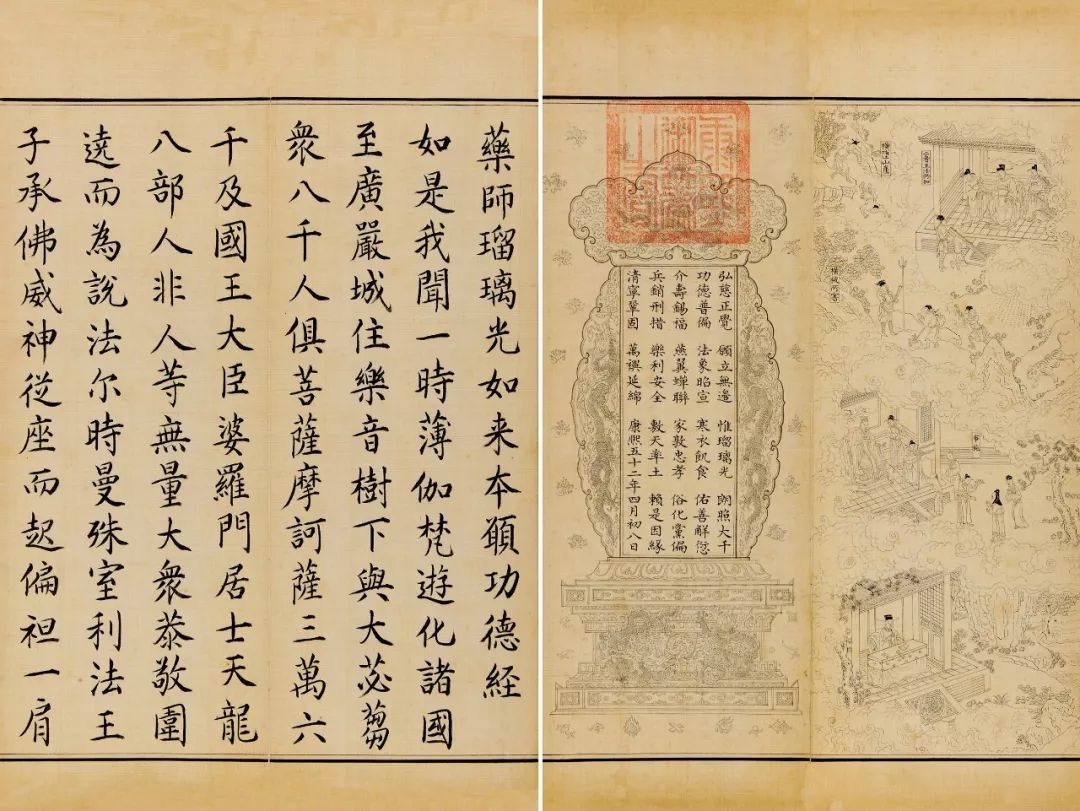 藥師瑠璃光如来本願功德經
如是我聞一時薄伽梵遊化諸國
至廣嚴城住樂音樹下與大苾蒭
衆八千人俱菩薩摩訶薩三萬六
千及國王大臣婆羅門居士天龍
八部人非人等無量大衆恭敬圍
遶而為說法尔時曼殊室利法王
子承佛威神從座而起偏袒一肩
弘慈正覺 願立無邊 惟瑠璃光 朗照大千
功德普徧 法象昭宣 寒衣飢食 佑善解愆
介壽錫福 燕翼蟬聯 家敦忠孝 俗化黨偏
兵銷刑措 樂利安全 敷天率土 賴是因緣
清寧鞏固 萬禩延綿 康熙五十二年四月初八日
橫墮山崖
布施